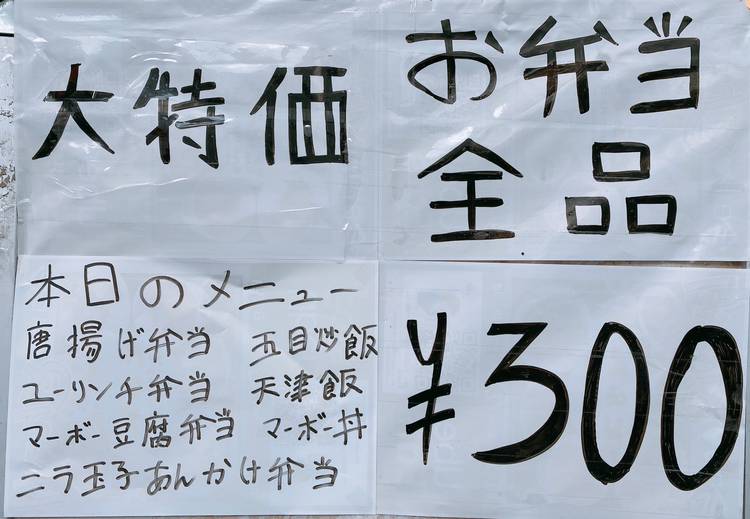 大特価
お弁当
全品
本日のメニュー
唐揚げ弁当 五目炒飯
ユーリンチ弁当 天津飯
マーボー豆腐弁当 マーボー丼
ニラ玉子あんかけ弁当
¥300